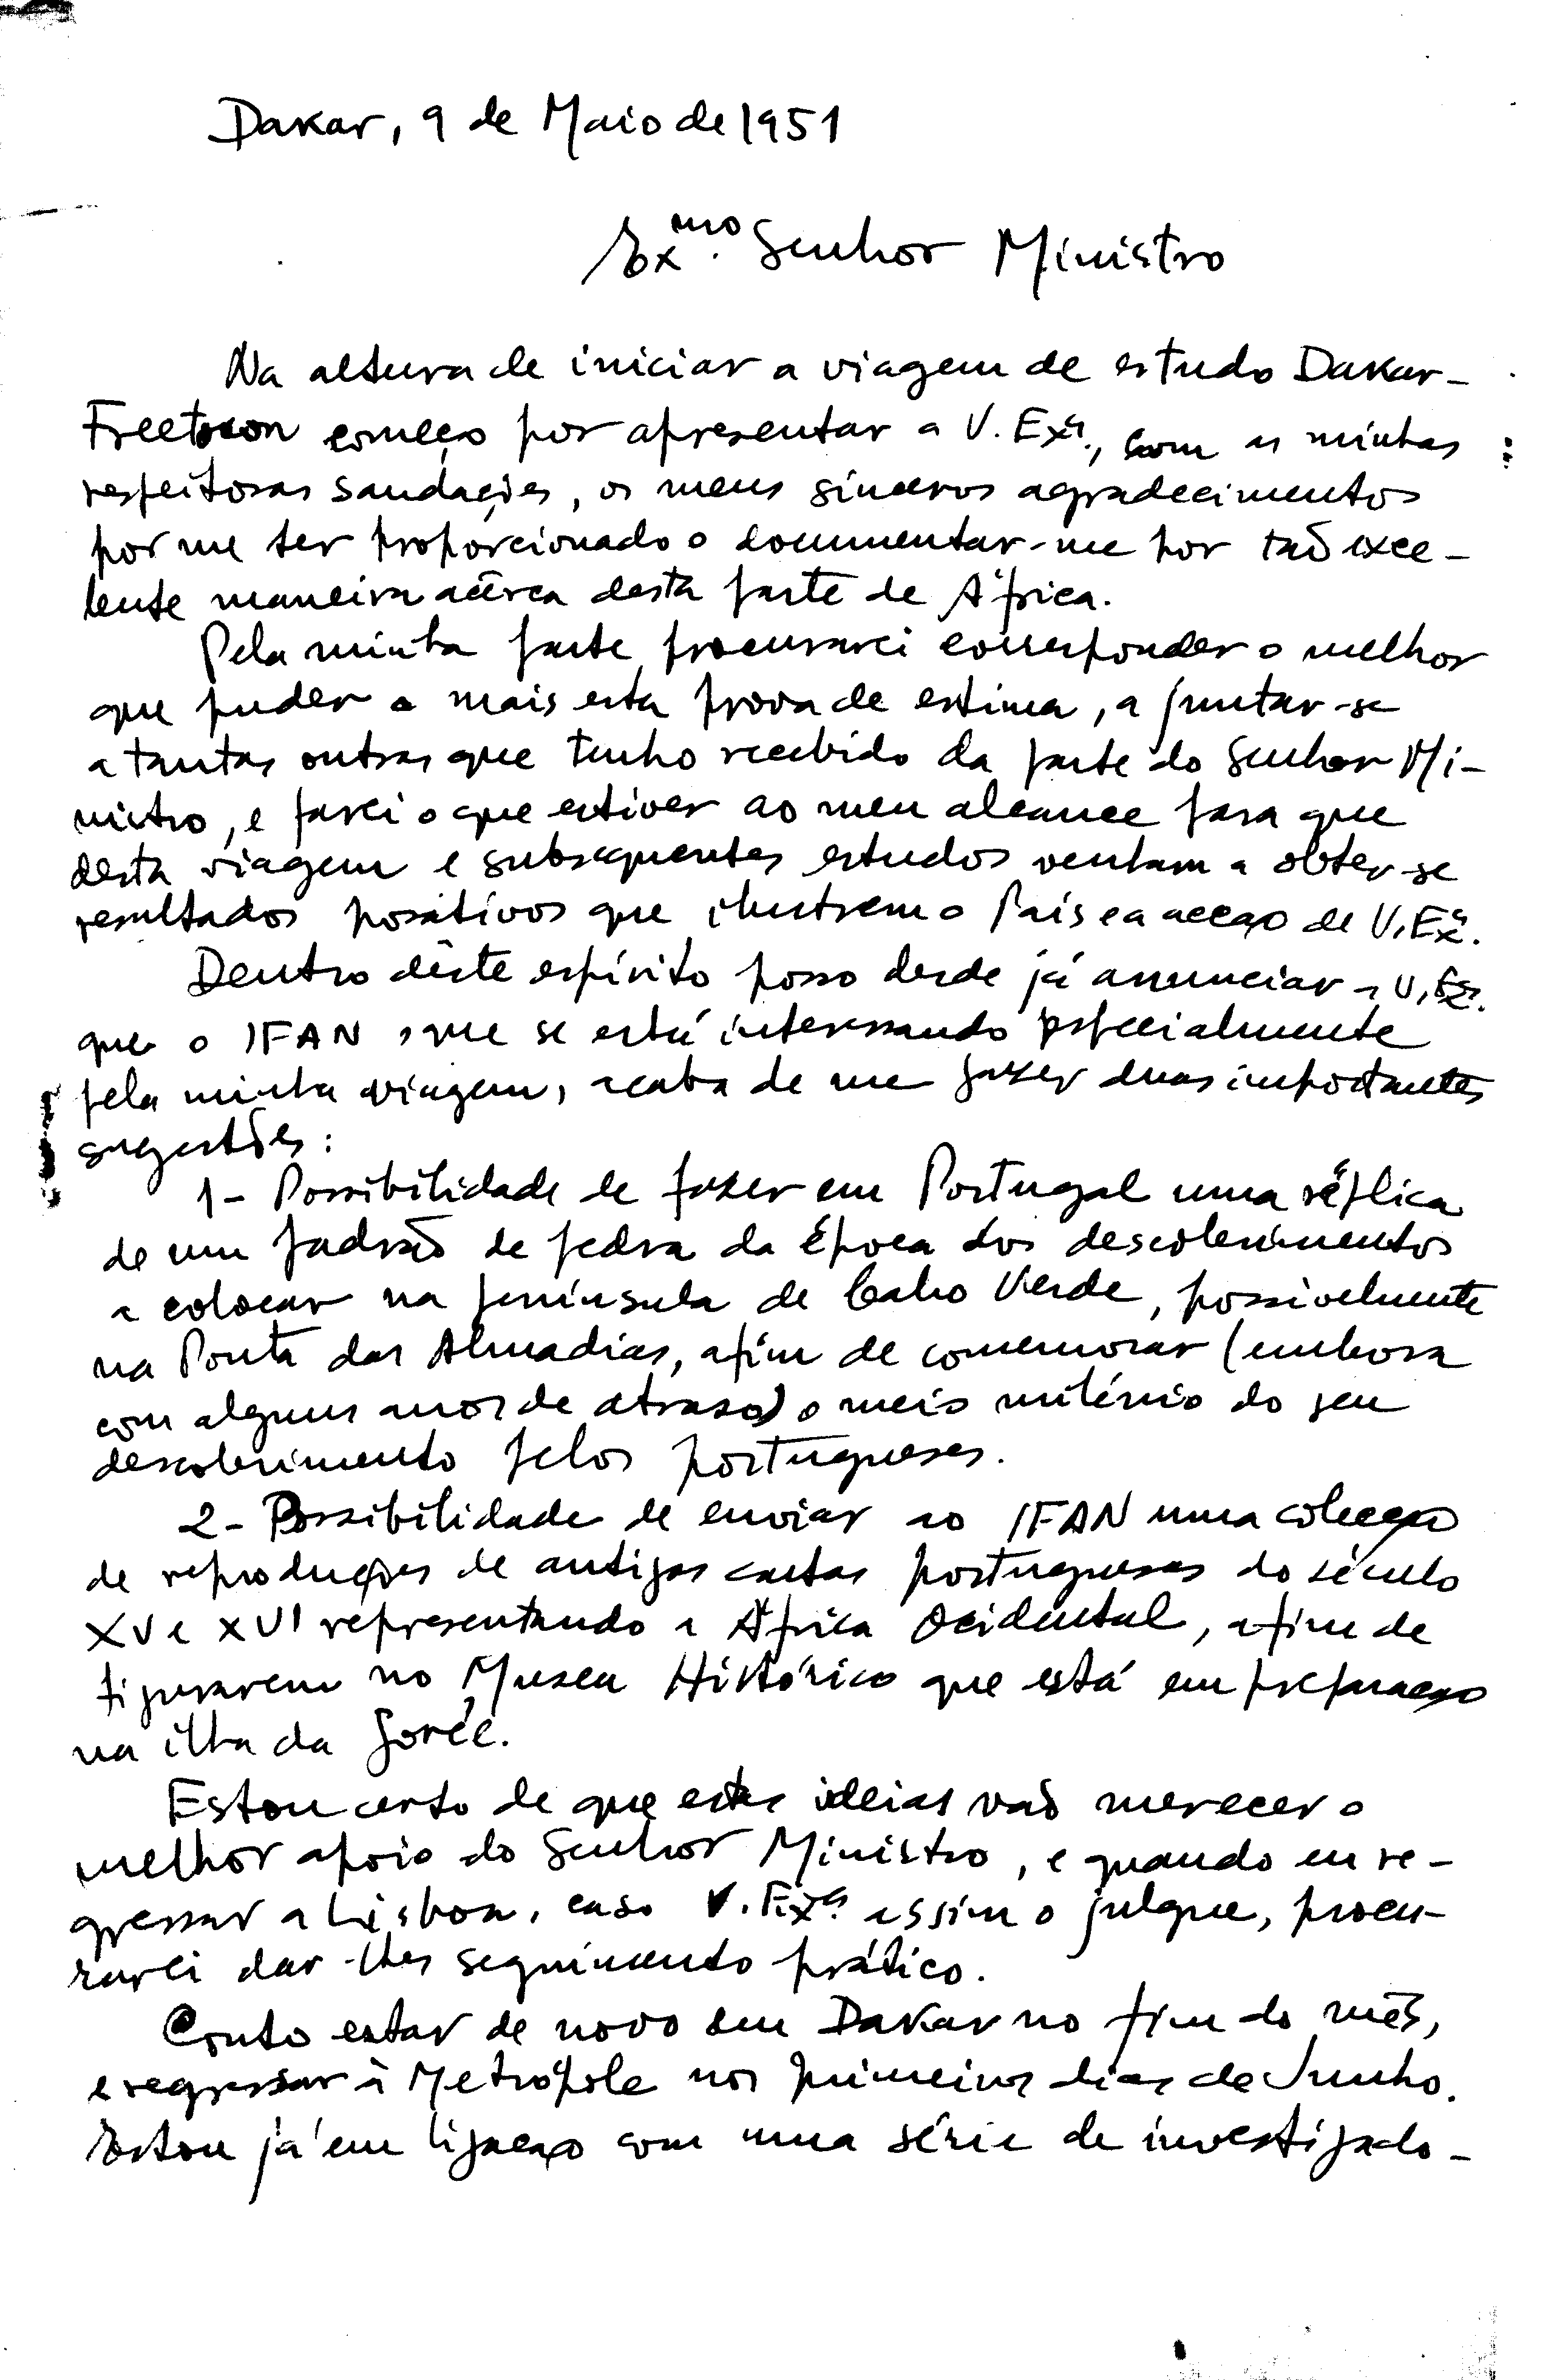 Dakar, 9 de Maio de 1951
Exmo. Senhor Ministro
Na altura de iniciar a viagem de estudo Dakar-
Freetown começo por apresentar a V. Exª., com as minhas
respeitosas saudações, os meus sinceros agradecimentos
por me ter proporcionado o documentar-me por tão exce-
lente maneira acêrca desta parte de África.
Pela minha parte procurarei corresponder o melhor
que puder a mais esta prova de estima, a juntar-se
a tantas outras que tenho recebido da parte do Senhor Mi-
nistro, e farei o que estiver ao meu alcance para que
desta viagem e subsequentes estudos venham a obter-se
resultados positivos que ilustrem o País e a acção de V. Exª.
Dentro dêste espírito posso desde já anunciar a V. Exª.
que o IFAN, que se está interessando especialmente
pela minha viagem, acaba de me fazer duas importantes
sugestões:
1- Possibilidade de fazer em Portugal uma réplica
de um padrão de pedra da época dos descobrimentos
a colocar na península de Cabo Verde, possivelmente
na Ponta das Almadias, afim de comemorar (embora
com alguns anos de atraso) o meio milénio do seu
descobrimento pelos portugueses.
2- Possibilidade de enviar ao IFAN uma colecção
de reproduções de antigas cartas portuguesas do século
XV e XVI representando a África Ocidental, afim de
figurarem no Museu Histórico que está em preparação
na ilha da Gorée.
Estou certo de que estas ideias vão merecer o
melhor apoio do Senhor Ministro, e quando eu re-
gressar a Lisboa, caso V. Exª. assim o julgue, procu-
rarei dar-lhes seguimento prático.
Conto estar de novo em Dakar no fim do mês,
e regressar à Metrópole nos primeiros dias de Junho.
Estou já em ligação com uma série de investigado-